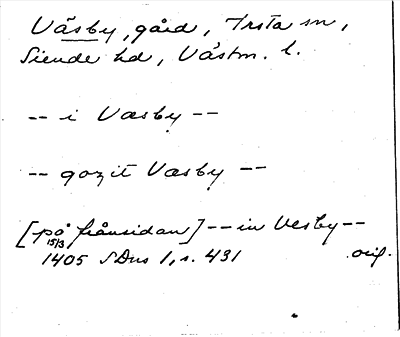 Väsby, gård, Irsta sn,
Siende hd, Västm. l.
-- i Væsby --
-- gozit Væsby --
[på frånsidan] -- in Vesby --
15/3 1405 SDns 1, s. 431 orig.